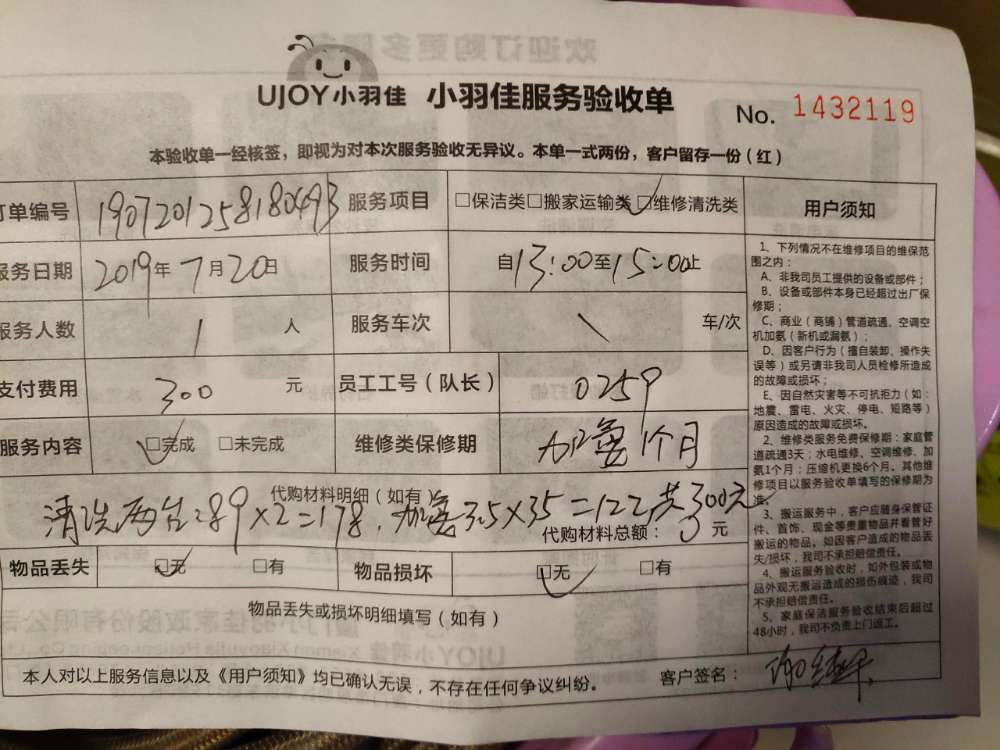 UJOY小羽佳 小羽佳服务验收单 No. 1432119
本验收单一经核签，即视为对本次服务验收无异议。本单一式两份，客户留存一份（红）
订单编号 1907201258180493 服务项目 □保洁类□搬家运输类□维修清洗类
服务日期 2019年7月20日 服务时间 自13:00至15:00止
服务人数 1人 服务车次 \ 车/次
支付费用 300元 员工工号（队长） 0259
服务内容 □完成 □未完成 维修类保修期 加氨1个月
代购材料明细（如有）
清洗两台:89×2=178，加氨3.5×35=122共300元
代购材料总额： 元
物品丢失 □无 □有 物品损坏 □无 □有
物品丢失或损坏明细填写（如有）
本人对以上服务信息以及《用户须知》均已确认无误，不存在任何争议纠纷。 客户签名：
用户须知
1、下列情况不在维修项目的维保范
围之内：
A、非我司员工提供的设备或部件；
B、设备或部件本身已经超过出厂保
修期；
C、商业（商铺）管道疏通、空调空
机加氨（新机或漏氨）；
D、因客户行为（擅自装卸、操作失
误等）或另请非我司人员检修所造成
的故障或损坏；
E、因自然灾害等不可抗拒力（如：
地震、雷电、火灾、停电、短路等）
原因造成的故障或损坏。
2、维修类服务免费保修期：家庭管
道疏通3天；水电维修、空调维修、加
氨1个月；压缩机更换6个月。其他维
修项目以服务验收单填写的保修期为
准。
3、搬运服务中，客户应随身保管证
件、首饰、现金等贵重物品并看管好
搬运的物品。如因客户造成的物品丢
失/损坏，我司不承担赔偿责任。
4、搬运服务验收时，如外包装或物
品外观无搬运造成的损伤痕迹，我司
不承担赔偿责任。
5、家庭保洁服务验收结束后超过
48小时，我司不负责上门返工。